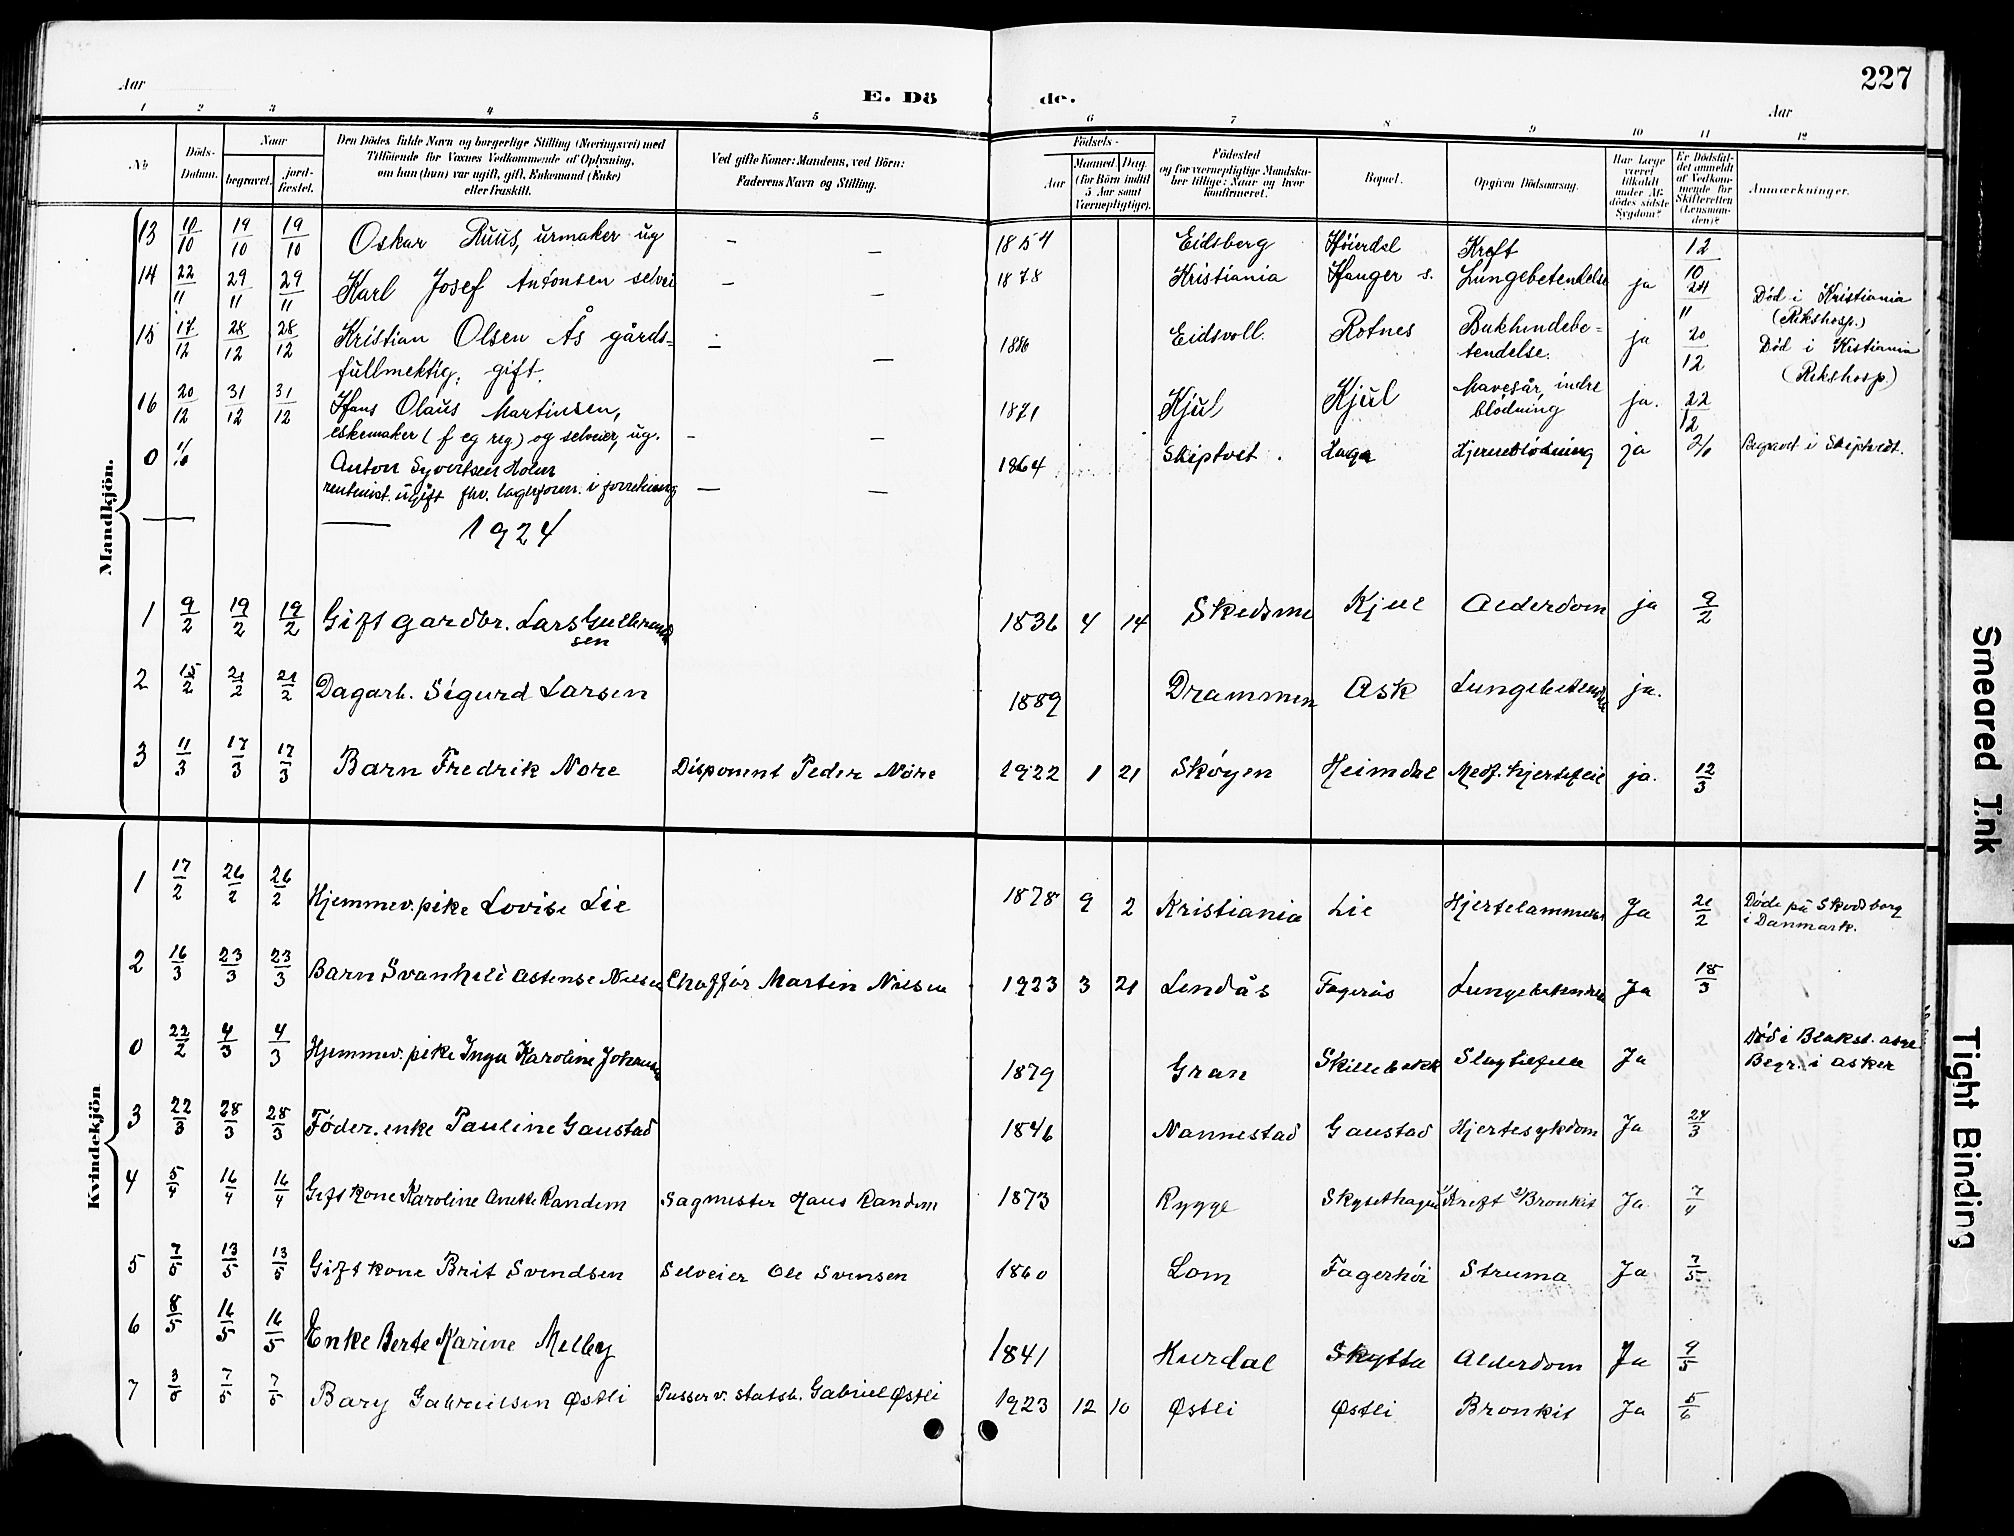 227
Aar E. Dö de. Aar
1 2 3 4 5 6 7 8 9 10 11 12
No. Döds-Datum. Naar begravet. jord-fæstet. Den Dödes fulde Navn og borgerlige Stilling (Næringsvei) med Tilföiende for Voxnes Vedkommende af Oplysning, om han (hun) var ugift, gift, Enkemand (Enke) eller fraskilt. Ved gifte Koner: Mandens, ved Börn: Faderens Navn og Stilling. Födsels- Aar Maaned Dag. (for Börn indtil 5 Aar samt Værnepligtige). Födested og for værnepligtige Mandskaber tillige: Naar og hvor konfirmeret. Bopæl. Opgiven Dödsaarsag. Har Læge været tilkaldt under Afdödes sidste Sygdom? Er Dödsfaldet anmeldt af Vedkommende for Skifteretten (Lensmanden)? Anmærkninger.
Mandkjön.
13 10/10 19/10 19/10 Oskar Ruus, urmaker ug — — 1854 Eidsberg Höierdal Kreft 12/10
14 22/11 29/11 29/11 Karl Josef Antonsen selvei — — 1878 Kristiania Hauger s. Lungebetendelse ja 24/11 Död i Kristiania (Rikshosp.)
15 17/12 28/12 28/12 Kristian Olsen Ås gårds=
fullmektig, gift. — — 1886 Eidsvoll. Rotnes Bukhindebe=
tendelse. ja 20/12 Död i Kistiania (Rikshosp.)
16 20/12 31/12 31/12 Hans Olaus Martinsen,
eskemaker (f eg reg) og selveier, ug. — — 1871 Kjul Kjul Mavesår, indre
blödning ja. 22/12
0 Anton Syvertsen Holm
rentenist. ugift fhv. lagerform. i forretning — — 1864 Skiptvet. Haga Hjerneblödning ja 2/10 Begravet i Skiptvedt.
1924
1 9/2 19/2 19/2 Gift gardbr. Lars Gulbrand
sen 1836 4 14 Skedsmo Kjul Alderdom ja 9/2
2 15/2 21/2 21/2 Dagarb. Sigurd Larsen 1889 Drammen Ask Lungebetendelse ja.
3 11/3 17/3 17/3 Barn Fredrik Nore Disponent Peder Nore 1922 1 21 Skøyen Heimdal Medf. hjertefeil ja. 12/3
Kvindekjön
1 17/2 26/2 26/2 Hjemmev. pike Lovise Lie 1878 9 2 Kristiania Lie Hjertelammelse Ja 21/2 Döde på Skodsborg
i Danmark.
2 16/3 23/3 23/3 Barn Svanhild Astense Nilsen Chaffør Martin Nilsen 1923 3 21 Lendås Fagerås Lungebetendelse Ja 18/3
0 22/2 4/3 4/3 Hjemmev. pike Inga Karoline Johansen 1879 Gran Skillebekk Slagtilfelle Ja Död i Blakst.
Begr. i Asker
3 22/3 28/3 28/3 Föder. enke Pauline Gaustad 1846 Nannestad Gaustad Hjertesykdom Ja 24/3
4 5/4 16/4 16/4 Gift kone Karoline Anette Randem Sagmester Hans Randem 1873 Rygge Skysethagen 1) Kreft 2) Bronkit Ja 7/4
5 7/5 13/5 13/5 Gift kone Brit Svendsen Selveier Ole Svensen 1860 Lom Fagerhöi Struma Ja 7/5
6 8/5 16/5 16/5 Enke Berte Karine Melby 1841 Hurdal Skytta Alderdom Ja 9/5
7 3/5 7/5 7/5 Bary Gabrielsen Østli Pusser v. statsb. Gabriel Østli 1923 12 10 Østli Østli Bronkit Ja 5/6
Smeared Ink
Tight Binding